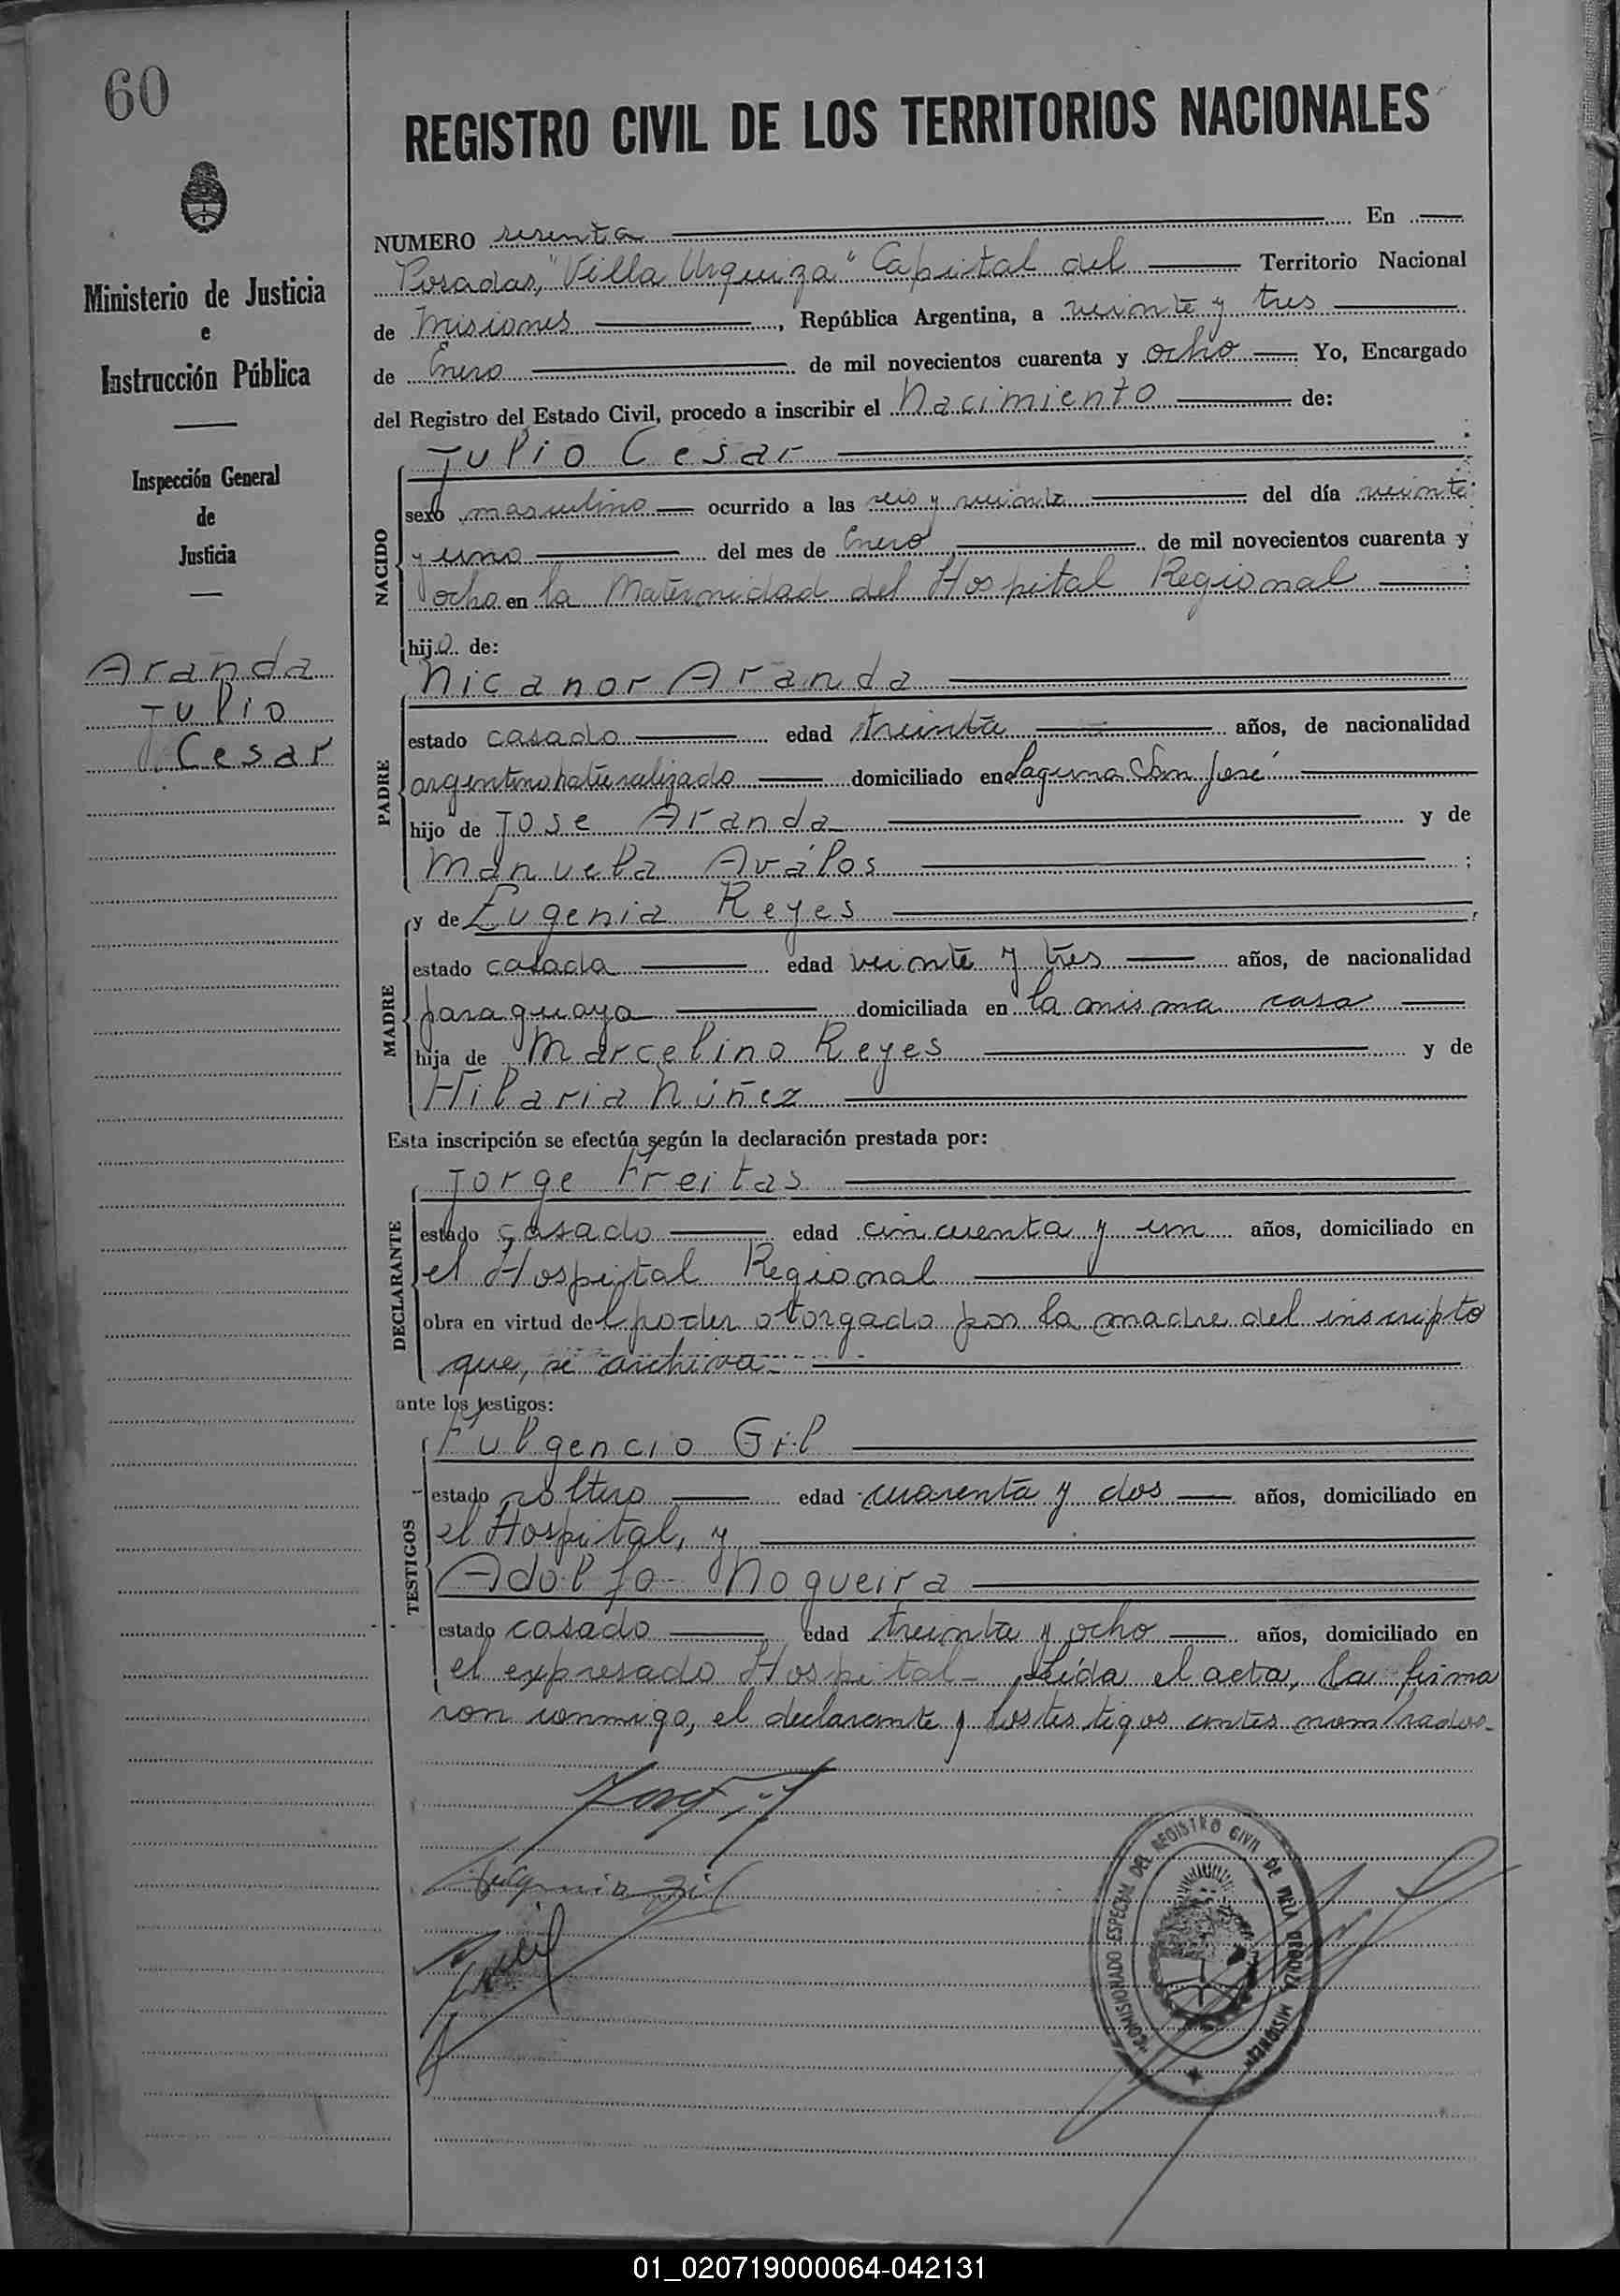 60
REGISTRO CIVIL DE LOS TERRITORIOS NACIONALES
Ministerio de Justicia
e
Instrucción Pública
Inspección General
de
Justicia
Aranda
Julio
Cesar
NUMERO sesenta En
Posadas, "Villa Urquiza" Capital del Territorio Nacional
de Misiones, República Argentina, a veinte y tres
de Enero de mil novecientos cuarenta y ocho Yo, Encargado
del Registro del Estado Civil, procedo a inscribir el Nacimiento de:
Julio Cesar
NACIDO
sexo masculino ocurrido a las seis y veinte del día veinte
y uno del mes de Enero de mil novecientos cuarenta y
ocho en la Maternidad del Hospital Regional
hijo de:
PADRE
Nicanor Aranda
estado casado edad treinta años, de nacionalidad
argentino naturalizado domiciliado en Laguna San José
hijo de Jose Aranda y de
Manuela Aválos ;
MADRE
y de Eugenia Reyes,
estado casada edad veinte y tres años, de nacionalidad
paraguaya domiciliada en la misma casa
hija de Marcelino Reyes y de
Hilaria Núñez
Esta inscripción se efectúa según la declaración prestada por:
DECLARANTE
Jorge Freitas
estado casado edad cincuenta y un años, domiciliado en
el Hospital Regional
obra en virtud del poder otorgado por la madre del inscripto
que, se archiva-
ante los testigos:
TESTIGOS
Fulgencio Gil
estado soltero edad cuarenta y dos años, domiciliado en
el Hospital, y
Adolfo Nogueira
estado casado edad treinta y ocho años, domiciliado en
el expresado Hospital- Leída el acta, la firma
ron conmigo, el declarante y los testigos antes nombrados-
COMISIONADO ESPECIAL DEL REGISTRO CIVIL DE VILLA URQUIZA MISIONES
01_020719000064-042131